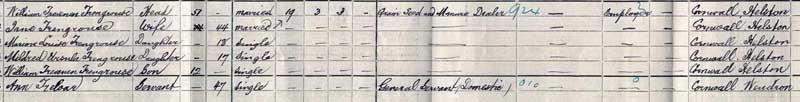 William Freeman Trengrouse Head 51 - married 19 3 3 - Grain Seed and Manure Dealer 924 Employer Cornwall Helston
Jane Trengrouse Wife 44 married Cornwall Helston
Marion Louise Trengrouse Daughter - 18 Single Cornwall Helston
Mildred Ursula Trengrouse Daughter - 17 Single Cornwall Helston
William Freeman Trengrouse Son 12 - Single Cornwall Helston
Ann Treloar Servant - 47 Single General Servant (Domestic) 010 0 Cornwall Wendron